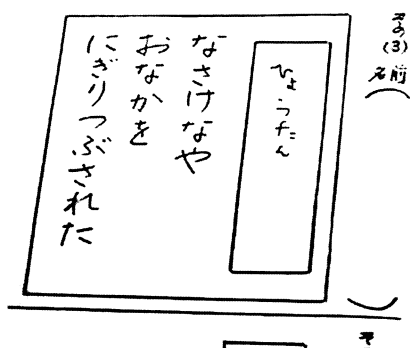 その(3)
名前
ひょうたん
なさけなや
おなかを
にぎりつぶされた
そ